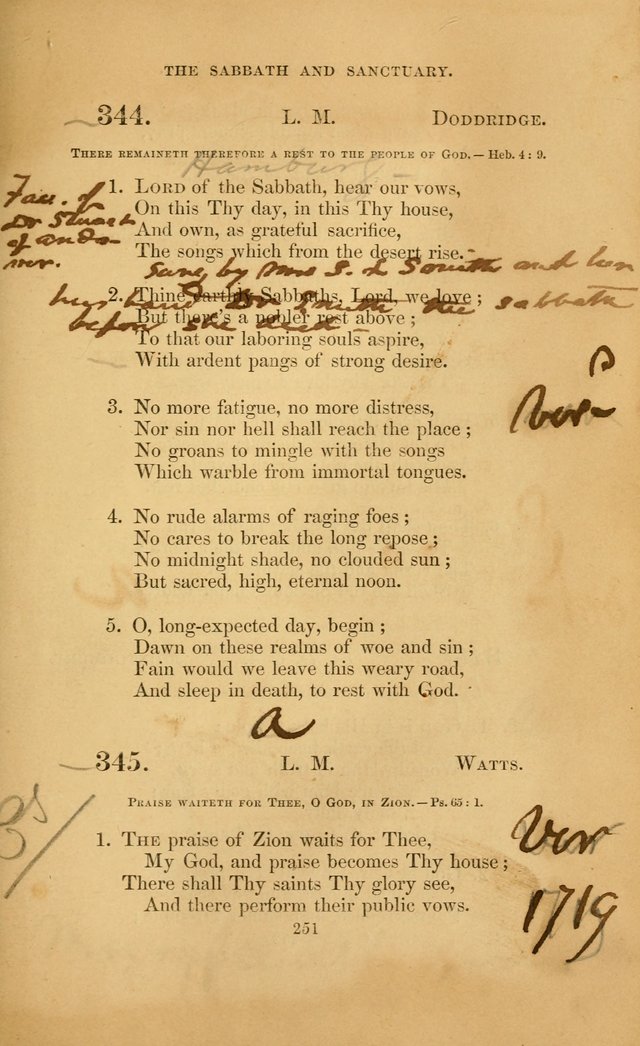 THE SABBATH AND SANCTUARY.
344. L. M. DODDRIDGE.
THERE REMAINETH THEREFORE A REST TO THE PEOPLE OF GOD.—HEB. 4: 9.
Hamburg
Fav. of
Dr Stuart
of ando-
ver.
1. LORD of the Sabbath, hear our vows,
On this Thy day, in this Thy house,
And own, as grateful sacrifice,
The songs which from the desert rise.
Sung by Mrs S. L Smith and her
husband Dr Smith the sabbath
before she died
2. Thine earthly Sabbaths, Lord, we love;
But there's a nobler rest above;
To that our laboring souls aspire,
With ardent pangs of strong desire.
3. No more fatigue, no more distress,
Nor sin nor hell shall reach the place;
No groans to mingle with the songs
Which warble from immortal tongues.
4. No rude alarms of raging foes;
No cares to break the long repose;
No midnight shade, no clouded sun;
But sacred, high, eternal noon.
5. O, long-expected day, begin;
Dawn on these realms of woe and sin;
Fain would we leave this weary road,
And sleep in death, to rest with God.
a
345. L. M. WATTS.
PRAISE WAITETH FOR THEE, O GOD, IN ZION.—PS. 65: 1.
1. THE praise of Zion waits for Thee,
My God, and praise becomes Thy house;
There shall Thy saints Thy glory see,
And there perform their public vows.
Ver
1719
251